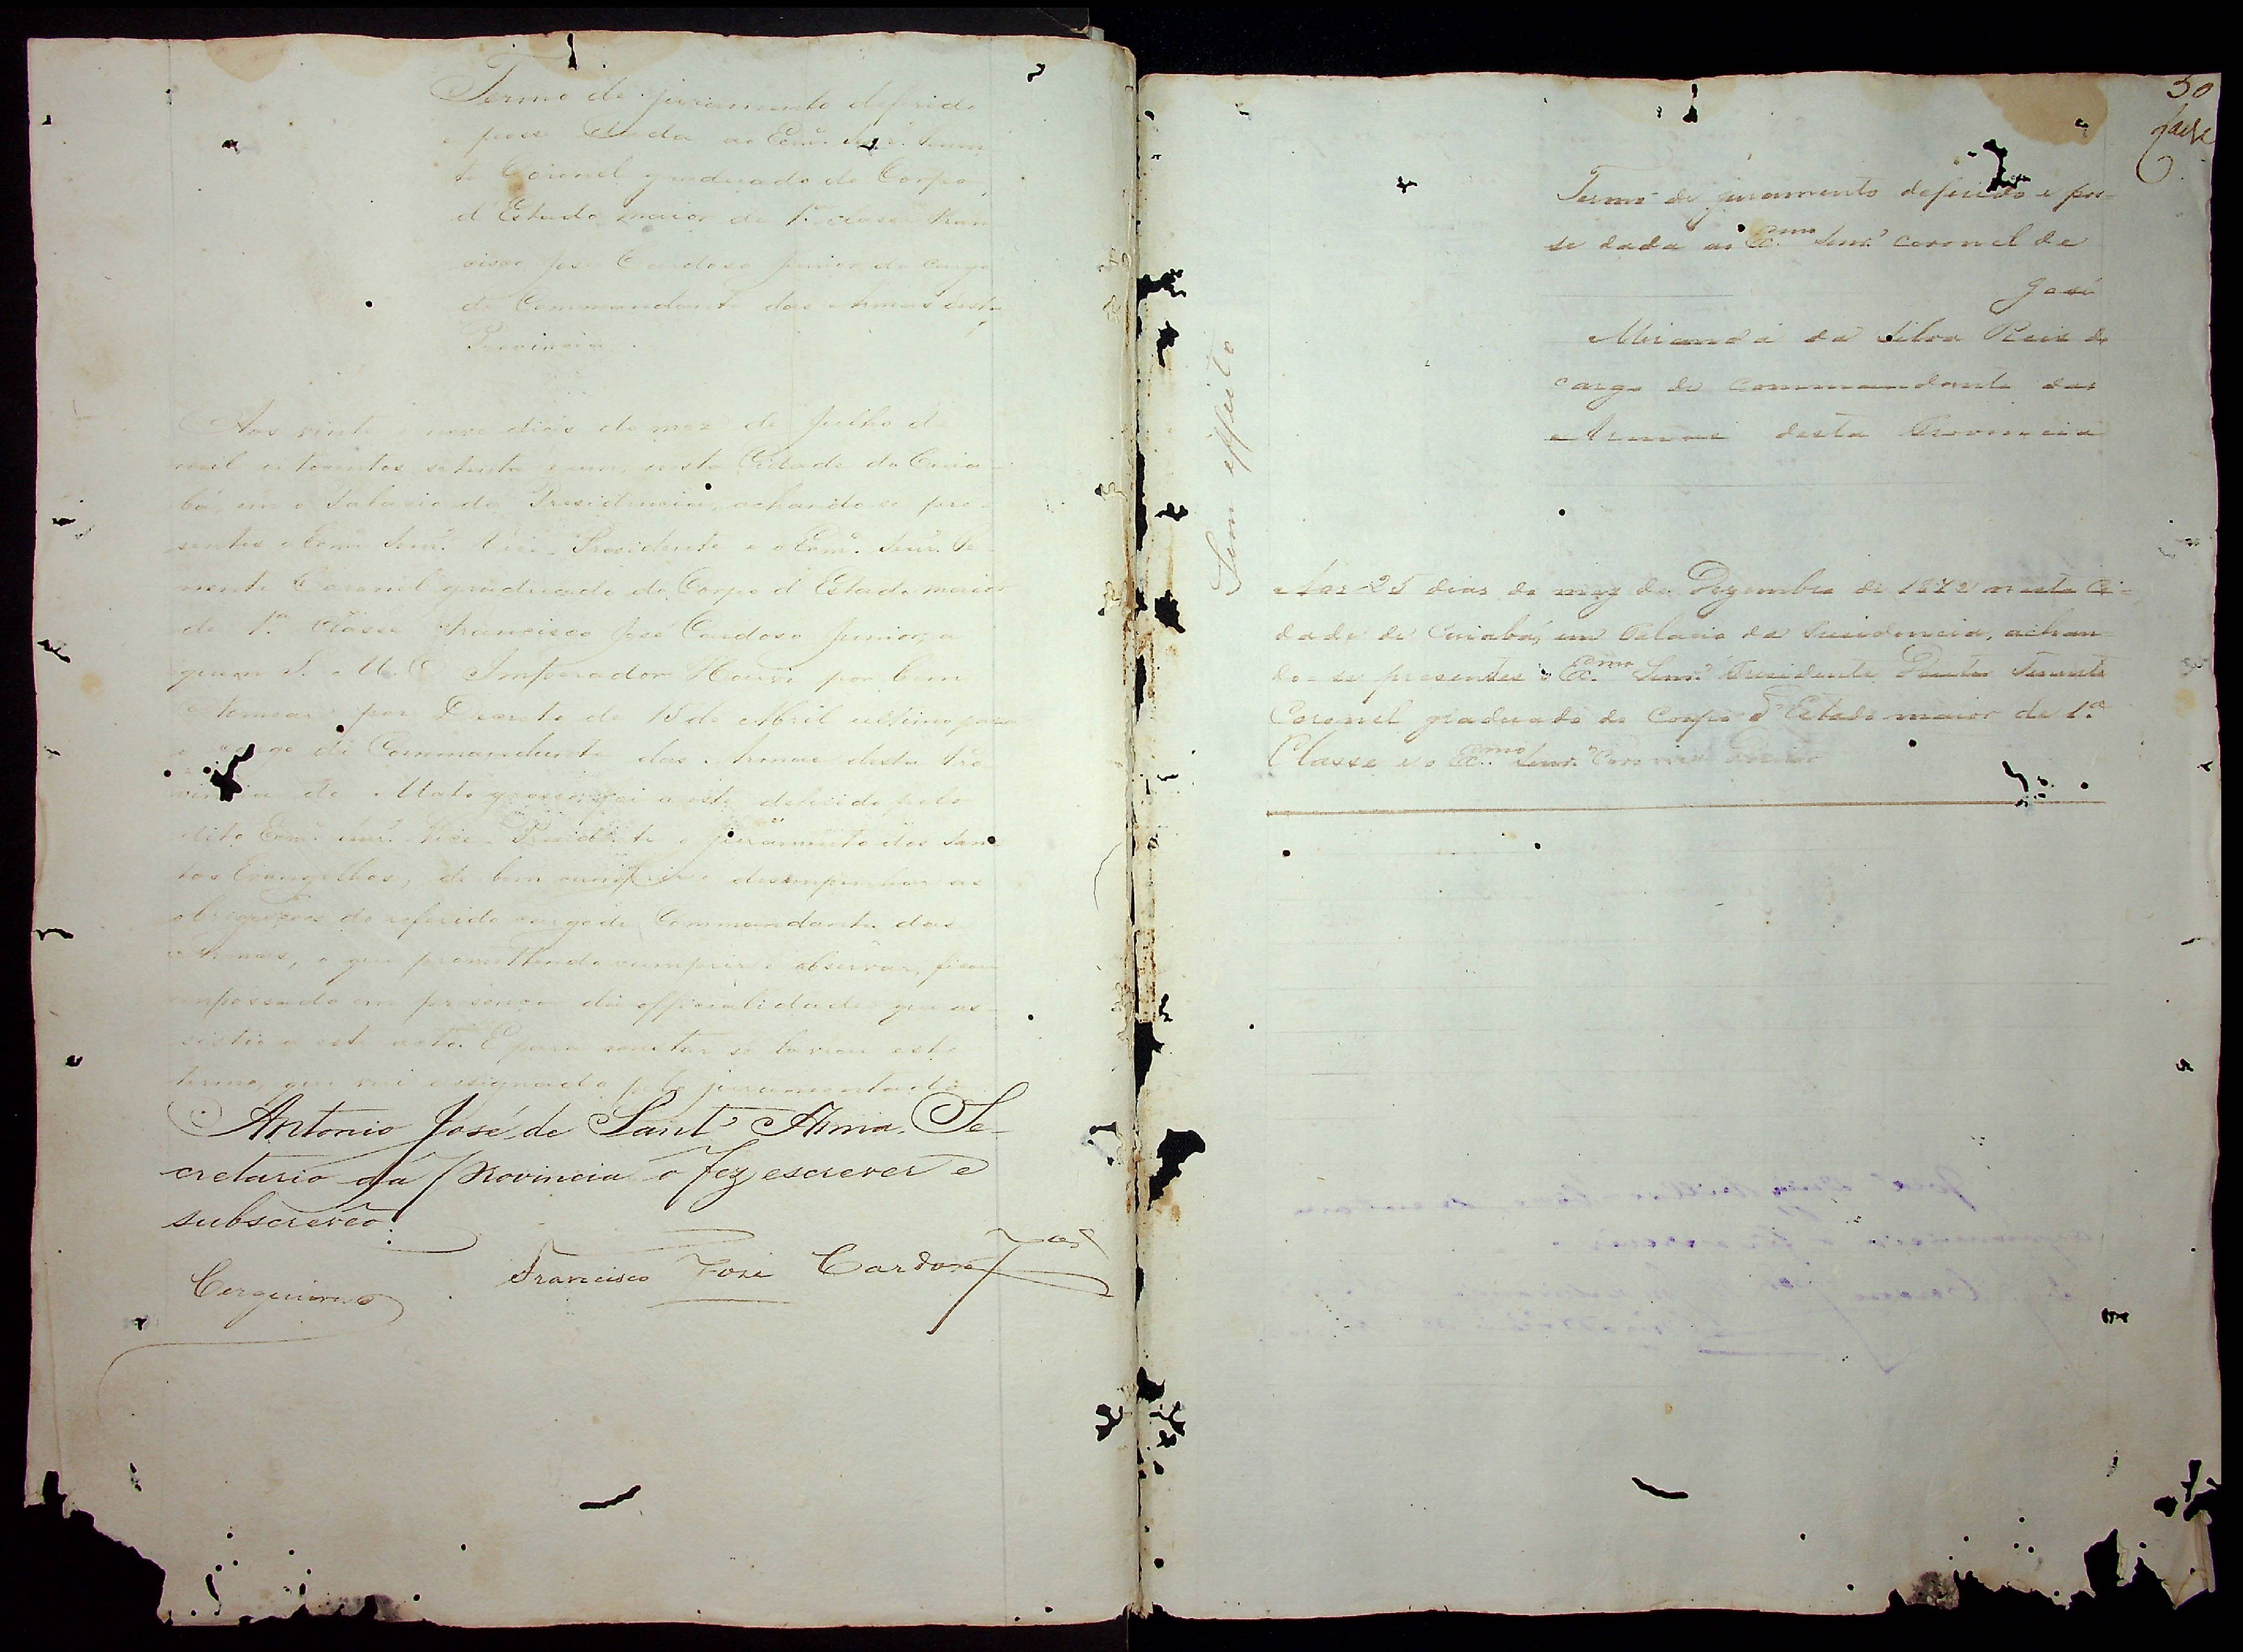 Termo de juramento deferido
e posse dada ao Exmº. Senr. Tenen
te Coronel graduado do Corpo
d'Estado maior de 1ª classe Fran
cisco José Cardoso Junior do cargo
de Commandante das Armas desta
Provincia.
Aos vinte e nove dias do mez de Julho d
mil oitocentos setenta e um, nesta Cidade do Cuia-
bá, em o Palacio da Presidencia, achando se pre-
sentes o Exmº Senr. Vice-Presidente e o Exmº. Senr. Te-
nente Coronel graduado do Corpo d'Estado maior
de 1ª Classe Francisco José Cardoso Junior, a
quem S. M. O Imperador Houve por bem
Nomear por Decreto de 15 de Abril ultimo para
o cargo de Commandante das Armas desta Pro
vincia de Mato grosso, foi a este deferido pelo
dito Exmº Senr. Vice-Presidente o juramento dos San
tos Evangelhos, de bem cumprir e desempenhar as
obrigações do referido cargo de Commandante das
Armas, o que promettendo cumprir e observar, ficou
empossado em presença da officialidade que as-
sistio a este acto. E para constar se lavrou este
termo, que vai assignado pelo juramentado
Antonio José de Sant'Anna, Se-
cretario da Provincia o fez escrever e
subscreveo.
Cerqueira
Francisco José Cardoso Jor
50
Sem effeito
Termo de juramento deferido e pos-
se dada ao Exmo Senr. Coronel de
José
Miranda da Silva Reis do
cargo de Commandante das
Armas desta Provincia
Aos 25 dias do mez de Dezembro de 1872 nesta Ci-
dade de Cuiabá, em Palacio da Presidencia, achan-
do-se presentes o Exmo Senr. Presidente Tenente
Coronel graduado do Corpo d'Estado maior de 1ª
Classe e o Exmo Senr. Coronel